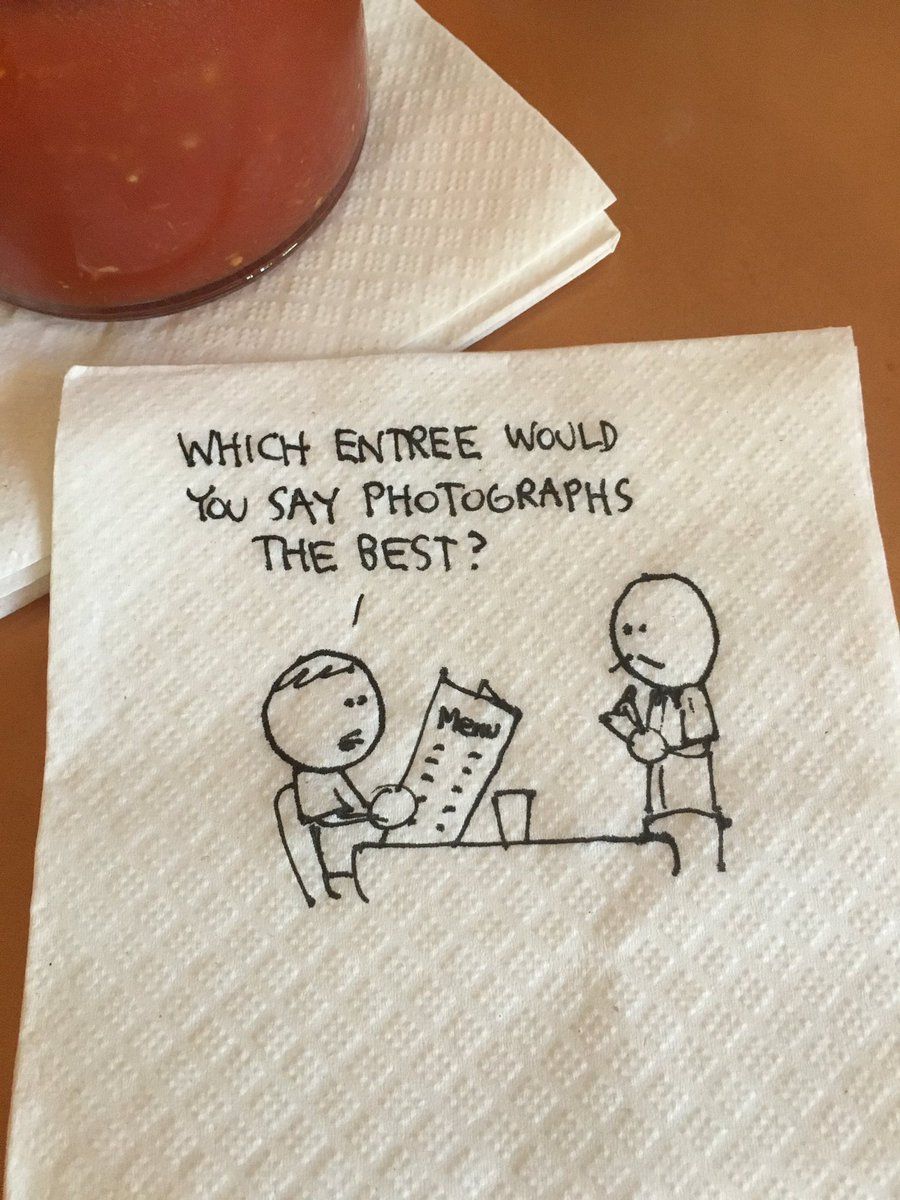 WHICH ENTREE WOULD
YOU SAY PHOTOGRAPHS
THE BEST?
Menu